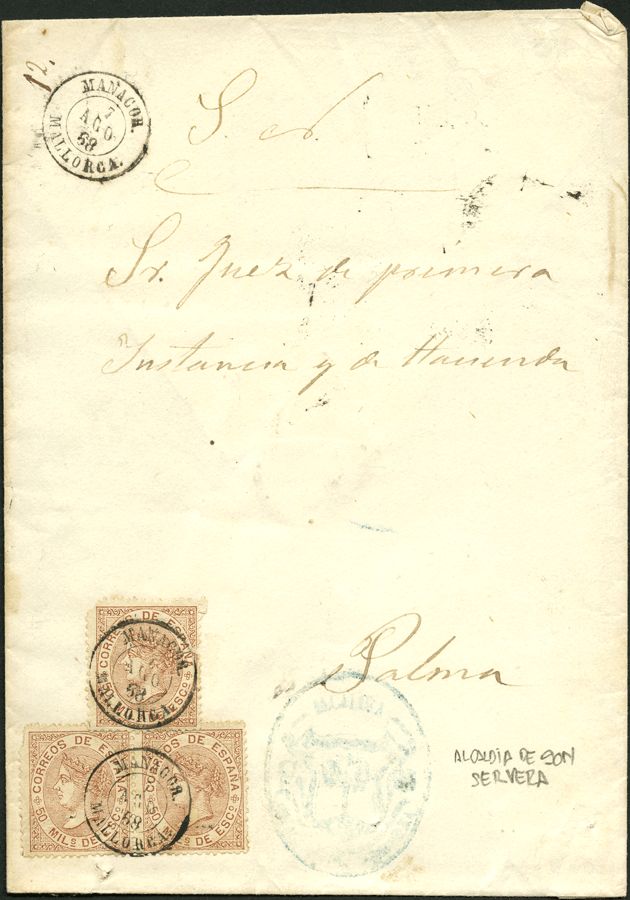 12.
MANACOR.
7
AGO.
68
MALLORCA.
S. N.
Sr. Juez de primera
Instancia y de Hacienda
Palma
ALCALDIA DE SON
SERVERA
CORREOS DE ESPAÑA
MANACOR.
AGO
68
MALLORCA.
CORREOS DE ESPAÑA
50 MILS DE ESCO
MANACOR.
68
MALLORCA.
CORREOS DE ESPAÑA
50 MILS DE ESCO
ALCALDIA